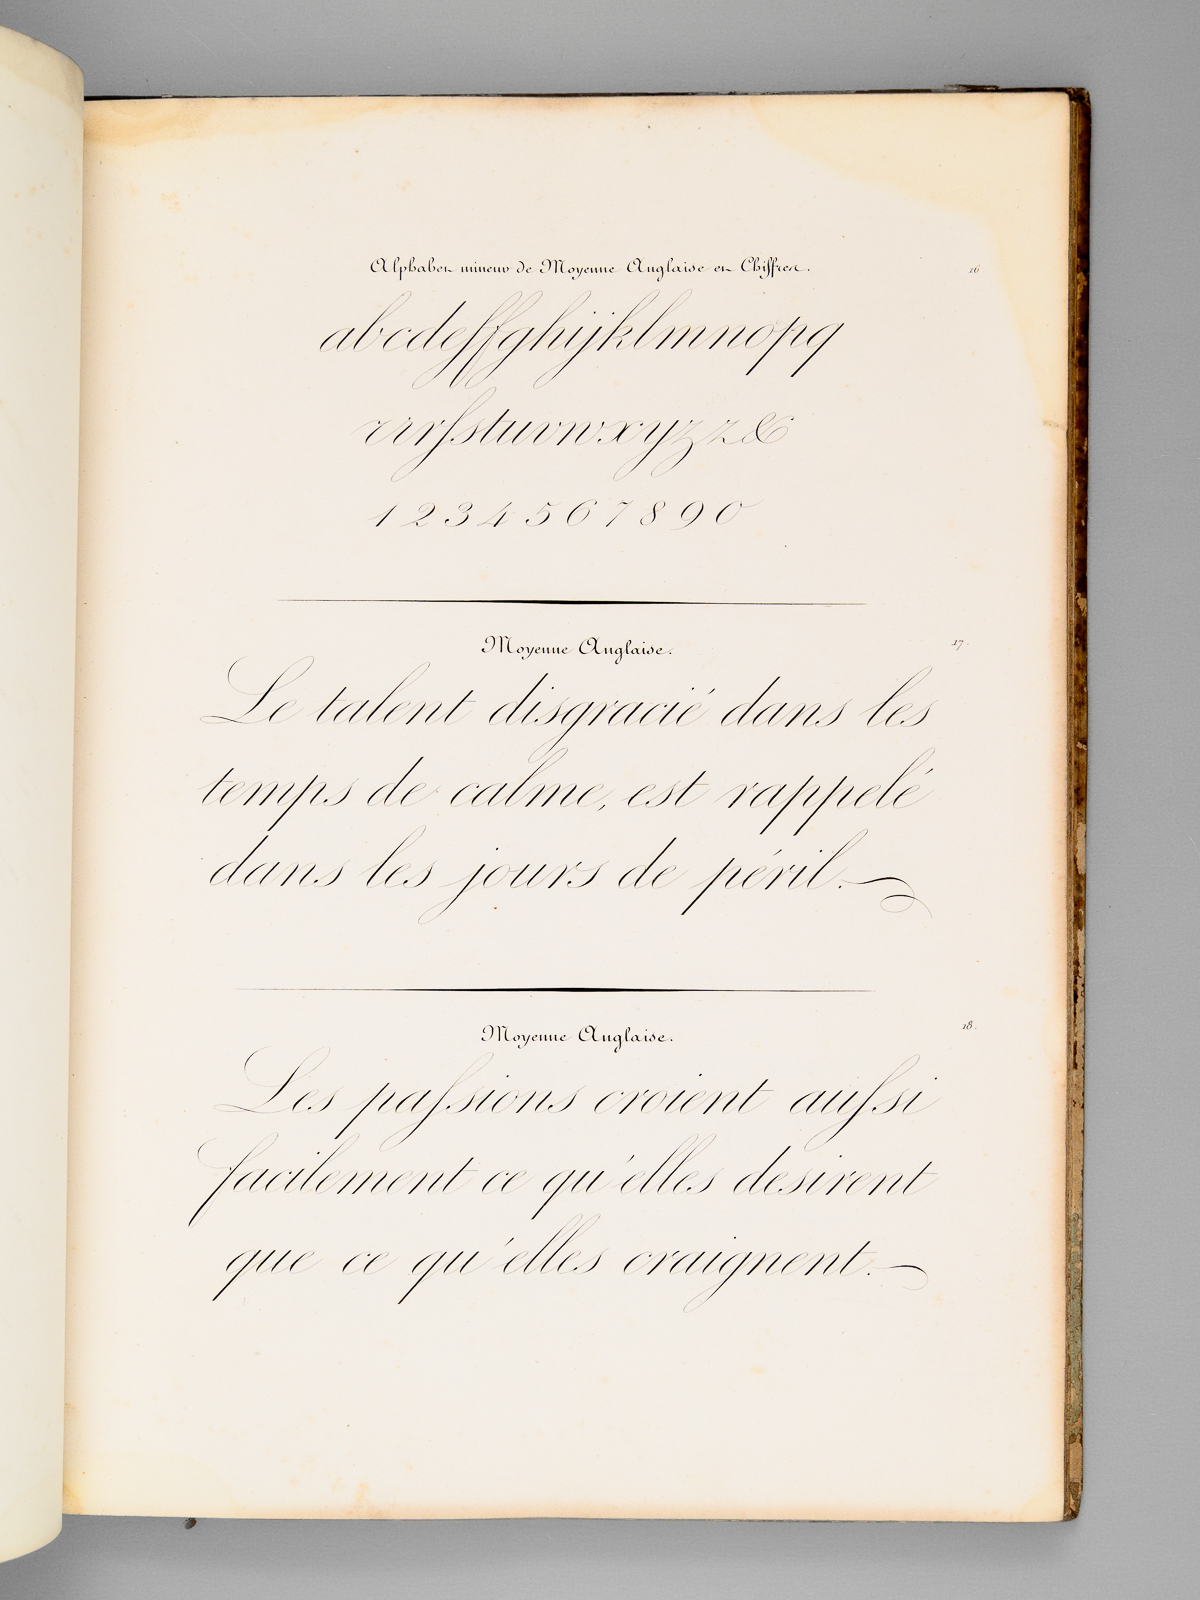 Alphabet mineur de Moyenne Anglaise et Chiffres.
16
abcdefffghijklmnopq
rrrſstuvwxyzz&
1 2 3 4 5 6 7 8 9 0
Moyenne Anglaise.
17.
Le talent disgracié dans les
temps de calme, est rappelé
dans les jours de péril.
Moyenne Anglaise.
18.
Les paſsions croient auſsi
facilement ce qu'elles desirent
que ce qu'elles craignent.